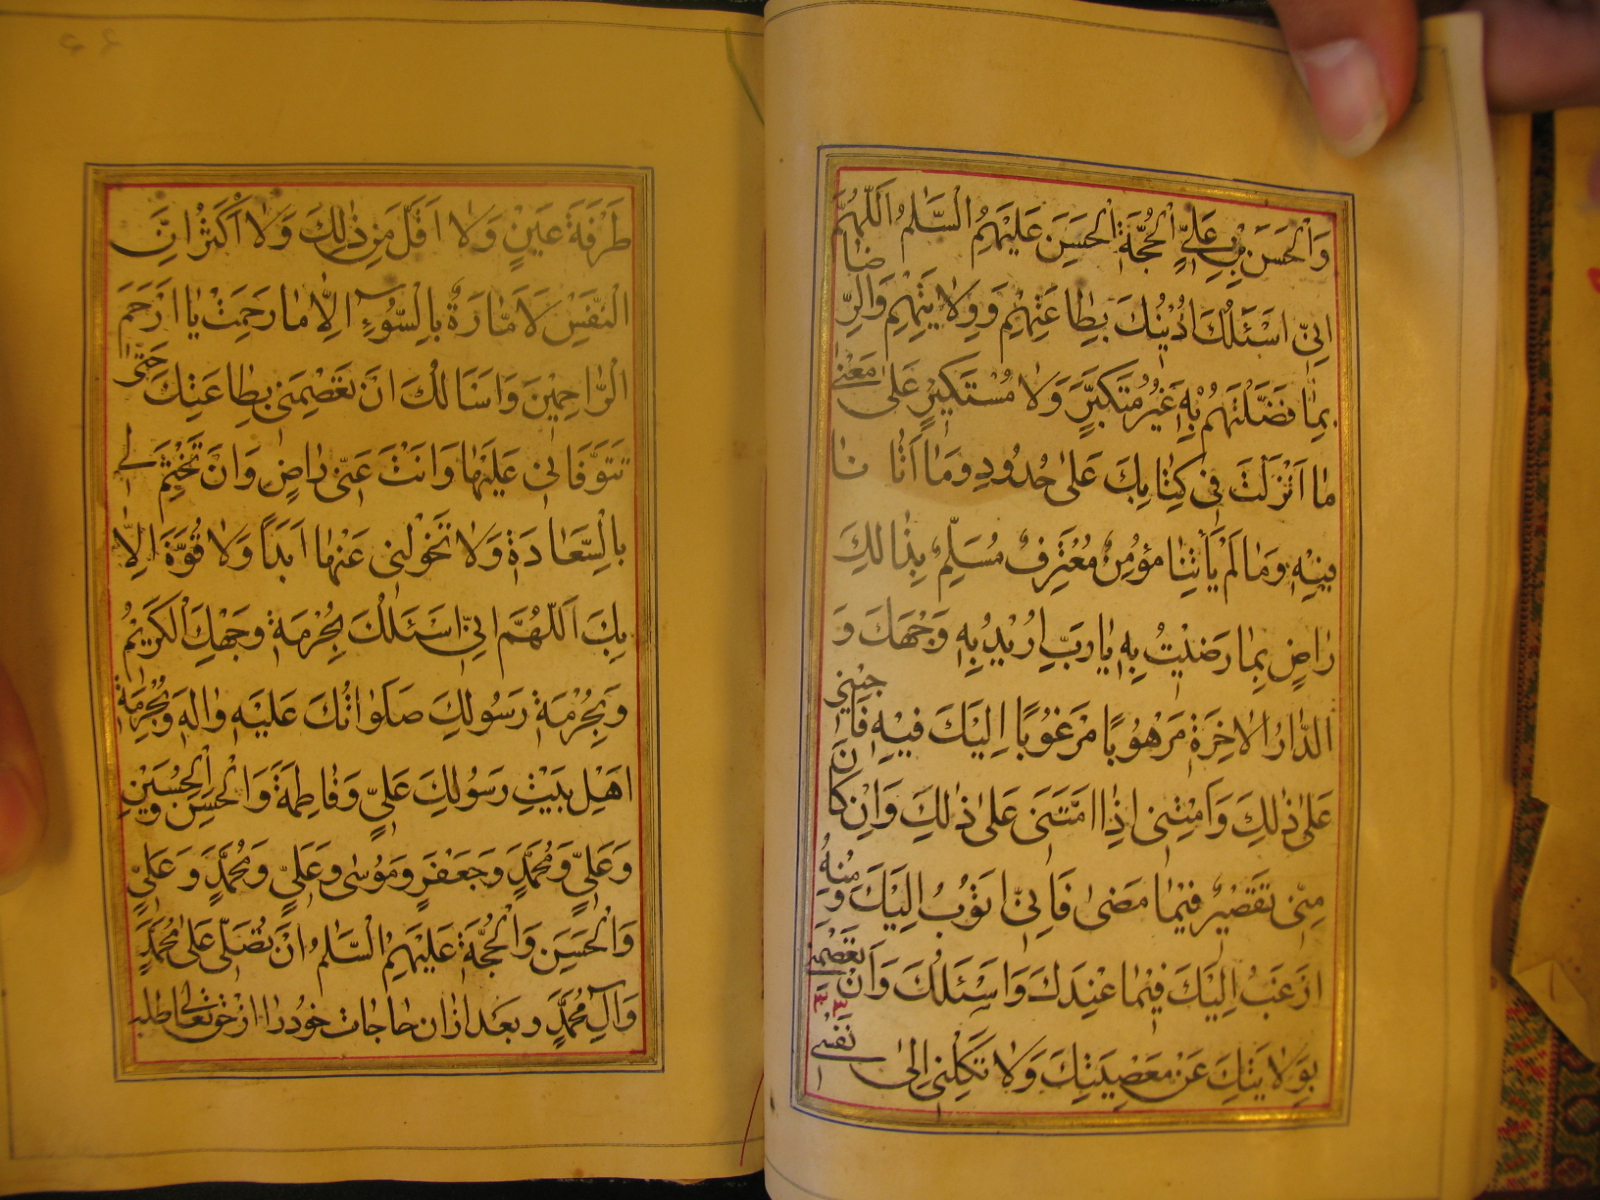 وَالْحَسَنَ بْنِ عَلِيٍّ الْحُجَّةَ الْحَسَنَ عَلَيْهِمُ السَّلٰمُ اَللّٰهُمَّ
اِنّى اَسْئَلُكَ اَدْيُنُكَ بِطٰاعَتِهِمْ وَوِلٰايَتِهِمْ وَالرِّضٰا
بِمٰا فَضَّلْتَهُمْ بِهِ غَيْرُ مُتَكَبِّرٍ وَلٰا مُسْتَكْبِرٍ عَلٰى مَعْنٰى
مٰا اَنْزَلْتَ فى كِتٰابِكَ عَلٰى حُدُودِ وَمٰا اَتٰانٰا
فيهِ وَمٰا لَمْ يَأْتِنٰا مُؤْمِنٌ مُعْتَرِفٌ مُسَلِّمٌ بِذٰالِكَ
رٰاضٍ بِمٰا رَضيْتَ بِهِ يٰا رَبِّ اُريدُ بِهِ وَجْهَكَ وَ
الدّٰارَ الْاٰخِرَةَ مَرْهُوبًا مَرْغُوبًا اِلَيْكَ فيهِ فَاَحْيِنى
عَلٰى ذٰلِكَ وَاَمِتْنى اِذٰا اَمَتَّنى عَلٰى ذٰلِكَ وَاِنْ كٰانَ
مِنّى تَقْصيرٌ فيمٰا مَضىٰ فَاِنّى اَتُوبُ اِلَيْكَ وَمِنْهُ
اَرْغَبُ اِلَيْكَ فيمٰا عِنْدَكَ وَاَسْئَلُكَ وَاَنْ تَعْصِمَنى
بِوَلٰايَتِكَ عَنْ مَعْصِيَتِكَ وَلٰا تَكِلْنى اِلىٰ نَفْسى
طَرْفَةَ عَيْنٍ وَلٰا اَقَلَّ مِنْ ذٰلِكَ وَلٰا اَكْثَرَ اِنَّ
النَّفْسَ لَاَمّٰارَةٌ بِالسُّوۤءِ اِلّٰا مٰا رَحِمْتَ يٰا اَرْحَمَ
الرّٰاحِمينَ وَاَسْاَلُكَ اَنْ تَعْصِمَنى بِطٰاعَتِكَ حَتّٰى
تَتَوَفّٰانى عَلَيْهٰا وَاَنْتَ عَنّى رٰاضٍ وَاَنْ تَخْتِمَ لى
بِالسَّعٰادَةِ وَلٰا تَحُولَنى عَنْهٰا اَبَدًا وَلٰا قُوَّةَ اِلّٰا
بِكَ اَللّٰهُمَّ اِنّى اَسْئَلُكَ بِحُرْمَةِ وَجْهِكَ الْكَريمُ
وَبِحُرْمَةِ رَسُولِكَ صَلَوٰاتُكَ عَلَيْهِ وَاٰلِهِ وَبِحُرْمَةِ
اَهْلِ بَيْتِ رَسُولِكَ عَلِيٍّ وَفٰاطِمَةَ وَالْحَسَنِ وَالْحُسَيْنِ
وَعَلِيٍّ وَمُحَمَّدٍ وَجَعْفَرٍ وَمُوسٰى وَعَلِيٍّ وَمُحَمَّدٍ وَعَلِيٍّ
وَالْحَسَنِ وَالْحُجَّةِ عَلَيْهِمُ السَّلٰمُ اَنْ تُصَلِّىَ عَلٰى مُحَمَّدٍ
وَآلِ مُحَمَّدٍ وبعد ازان حاجات خود را از حق تعالى طلبد